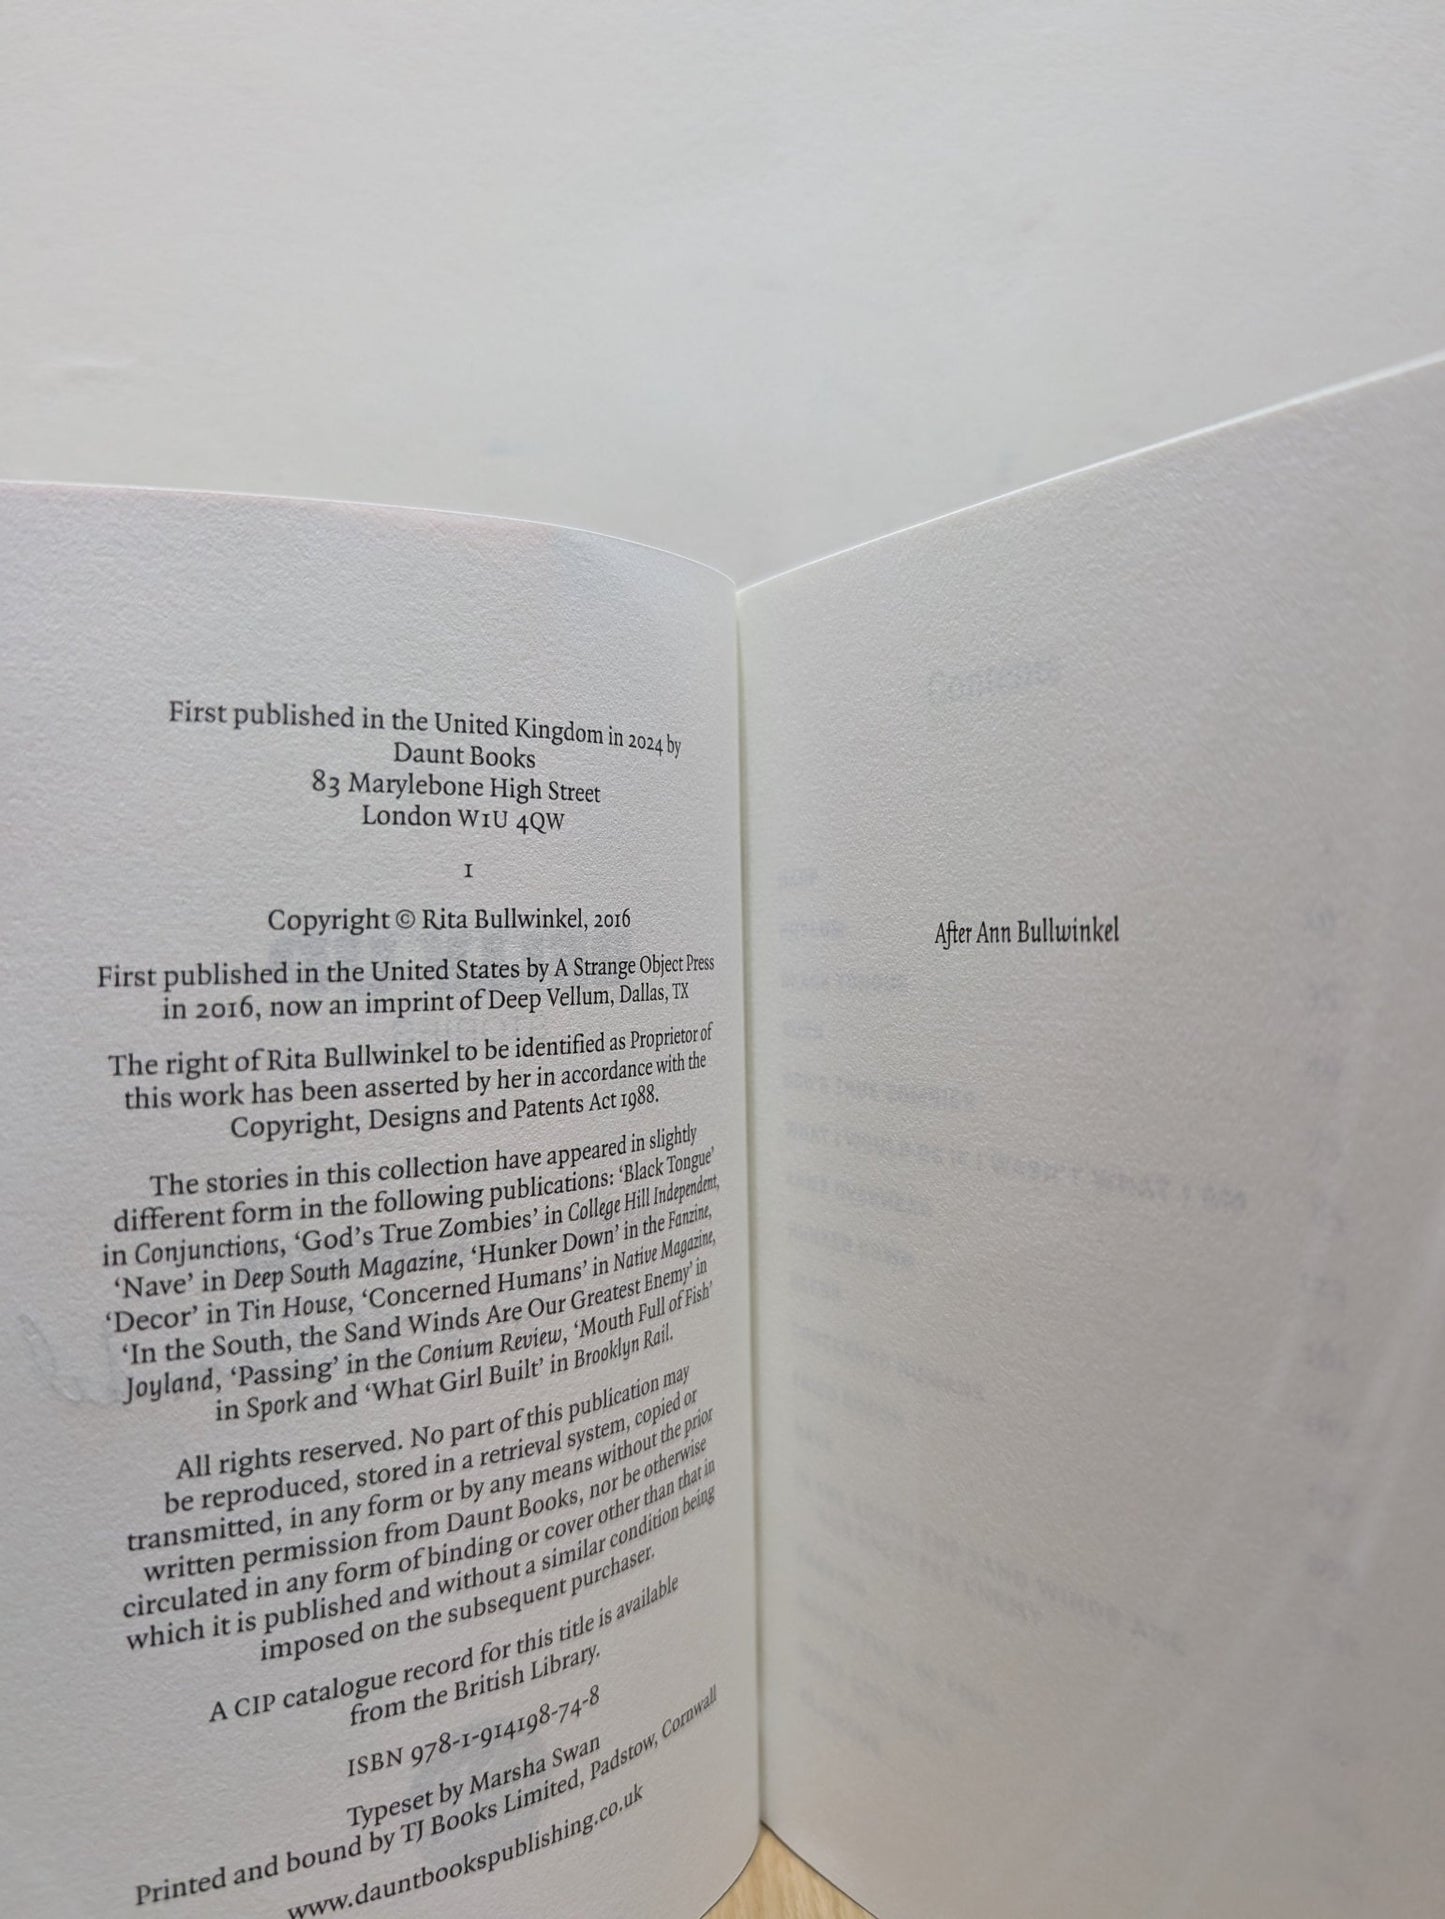 First published in the United Kingdom in 2024 by
Daunt Books
83 Marylebone High Street
London W1U 4QW
1
Copyright © Rita Bullwinkel, 2016
First published in the United States by A Strange Object Press
in 2016, now an imprint of Deep Vellum, Dallas, TX
The right of Rita Bullwinkel to be identified as Proprietor of
this work has been asserted by her in accordance with the
Copyright, Designs and Patents Act 1988.
The stories in this collection have appeared in slightly
different form in the following publications: ‘Black Tongue’
in Conjunctions, ‘God’s True Zombies’ in College Hill Independent,
‘Nave’ in Deep South Magazine, ‘Hunker Down’ in the Fanzine,
‘Decor’ in Tin House, ‘Concerned Humans’ in Native Magazine,
‘In the South, the Sand Winds Are Our Greatest Enemy’ in
Joyland, ‘Passing’ in the Conium Review, ‘Mouth Full of Fish’
in Spork and ‘What Girl Built’ in Brooklyn Rail.
All rights reserved. No part of this publication may
be reproduced, stored in a retrieval system, copied or
transmitted, in any form or by any means without the prior
written permission from Daunt Books, nor be otherwise
circulated in any form of binding or cover other than that in
which it is published and without a similar condition being
imposed on the subsequent purchaser.
A CIP catalogue record for this title is available
from the British Library.
ISBN 978-1-914198-74-8
Typeset by Marsha Swan
Printed and bound by TJ Books Limited, Padstow, Cornwall
www.dauntbookspublishing.co.uk
After Ann Bullwinkel